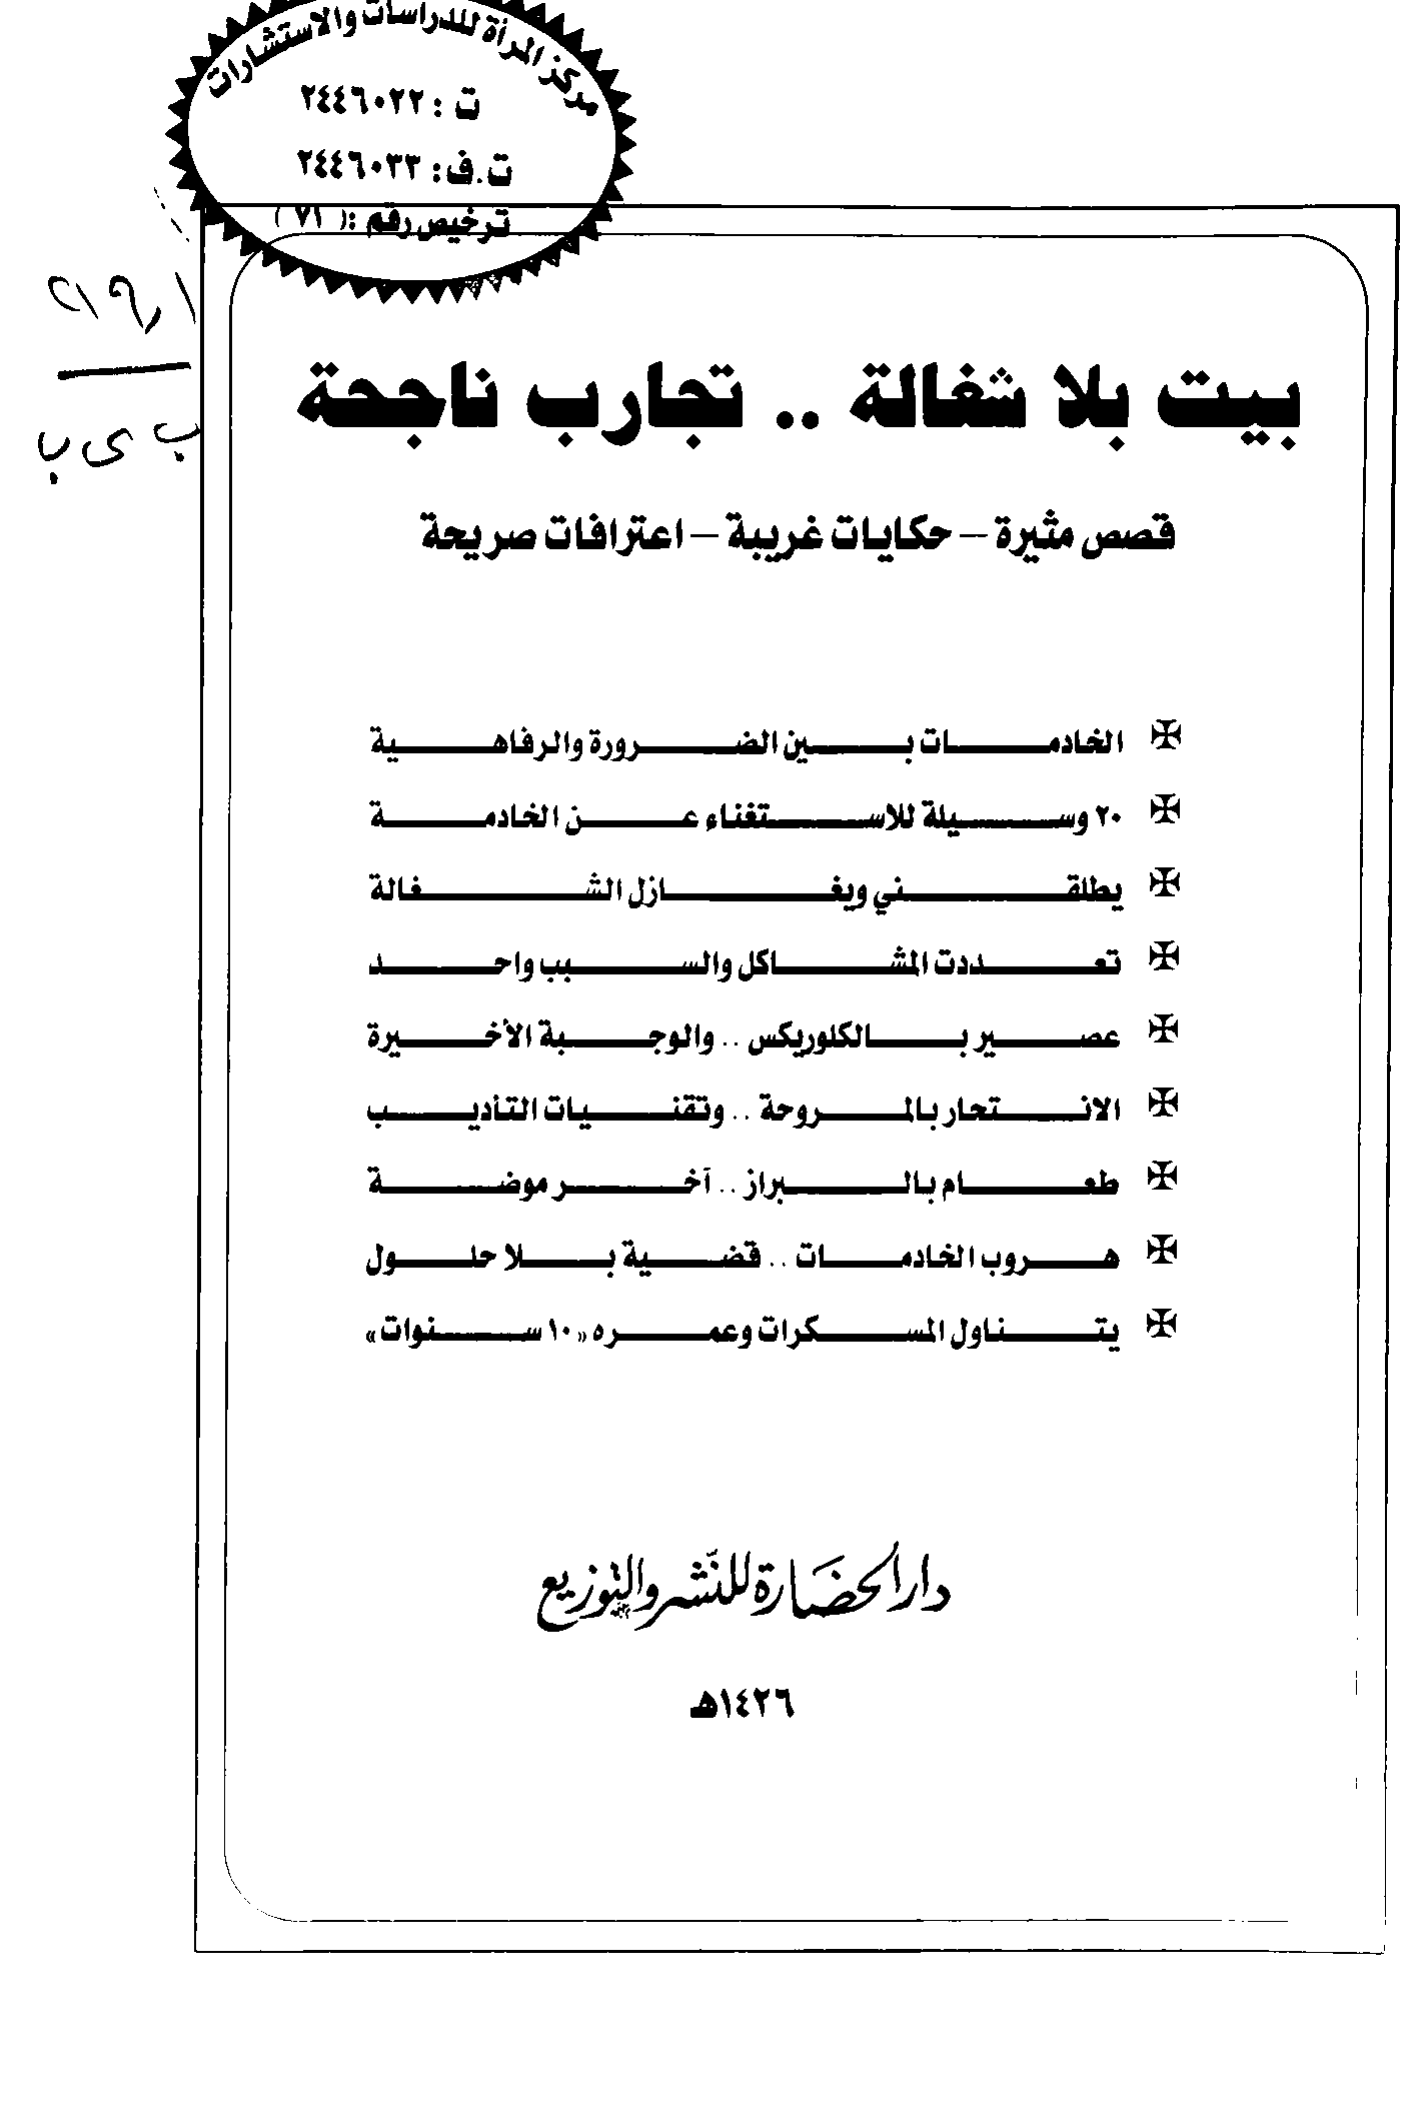 مركز المرأة للدراسات والاستشارات
ت : ٢٤٤٦٠٢٢
ت.ف: ٢٤٤٦٠٣٣
ترخيص رقم :( ٧١ )
بيت بلا شغالة .. تجارب ناجحة
قصص مثيرة – حكايات غريبة – اعترافات صريحة
الخادمات بين الضرورة والرفاهية
٢٠ وسيلة للاستغناء عن الخادمة
يطلقني ويغازل الشغالة
تعددت المشاكل والسبب واحد
عصير بالكلوريكس .. والوجبة الأخيرة
الانتحار بالمروحة .. وتقنيات التأديب
طعام بالبراز .. آخر موضة
هروب الخادمات .. قضية بلا حلول
يتناول المسكرات وعمره «١٠ سنوات»
دار الحضارة للنشر والتوزيع
١٤٢٦هـ